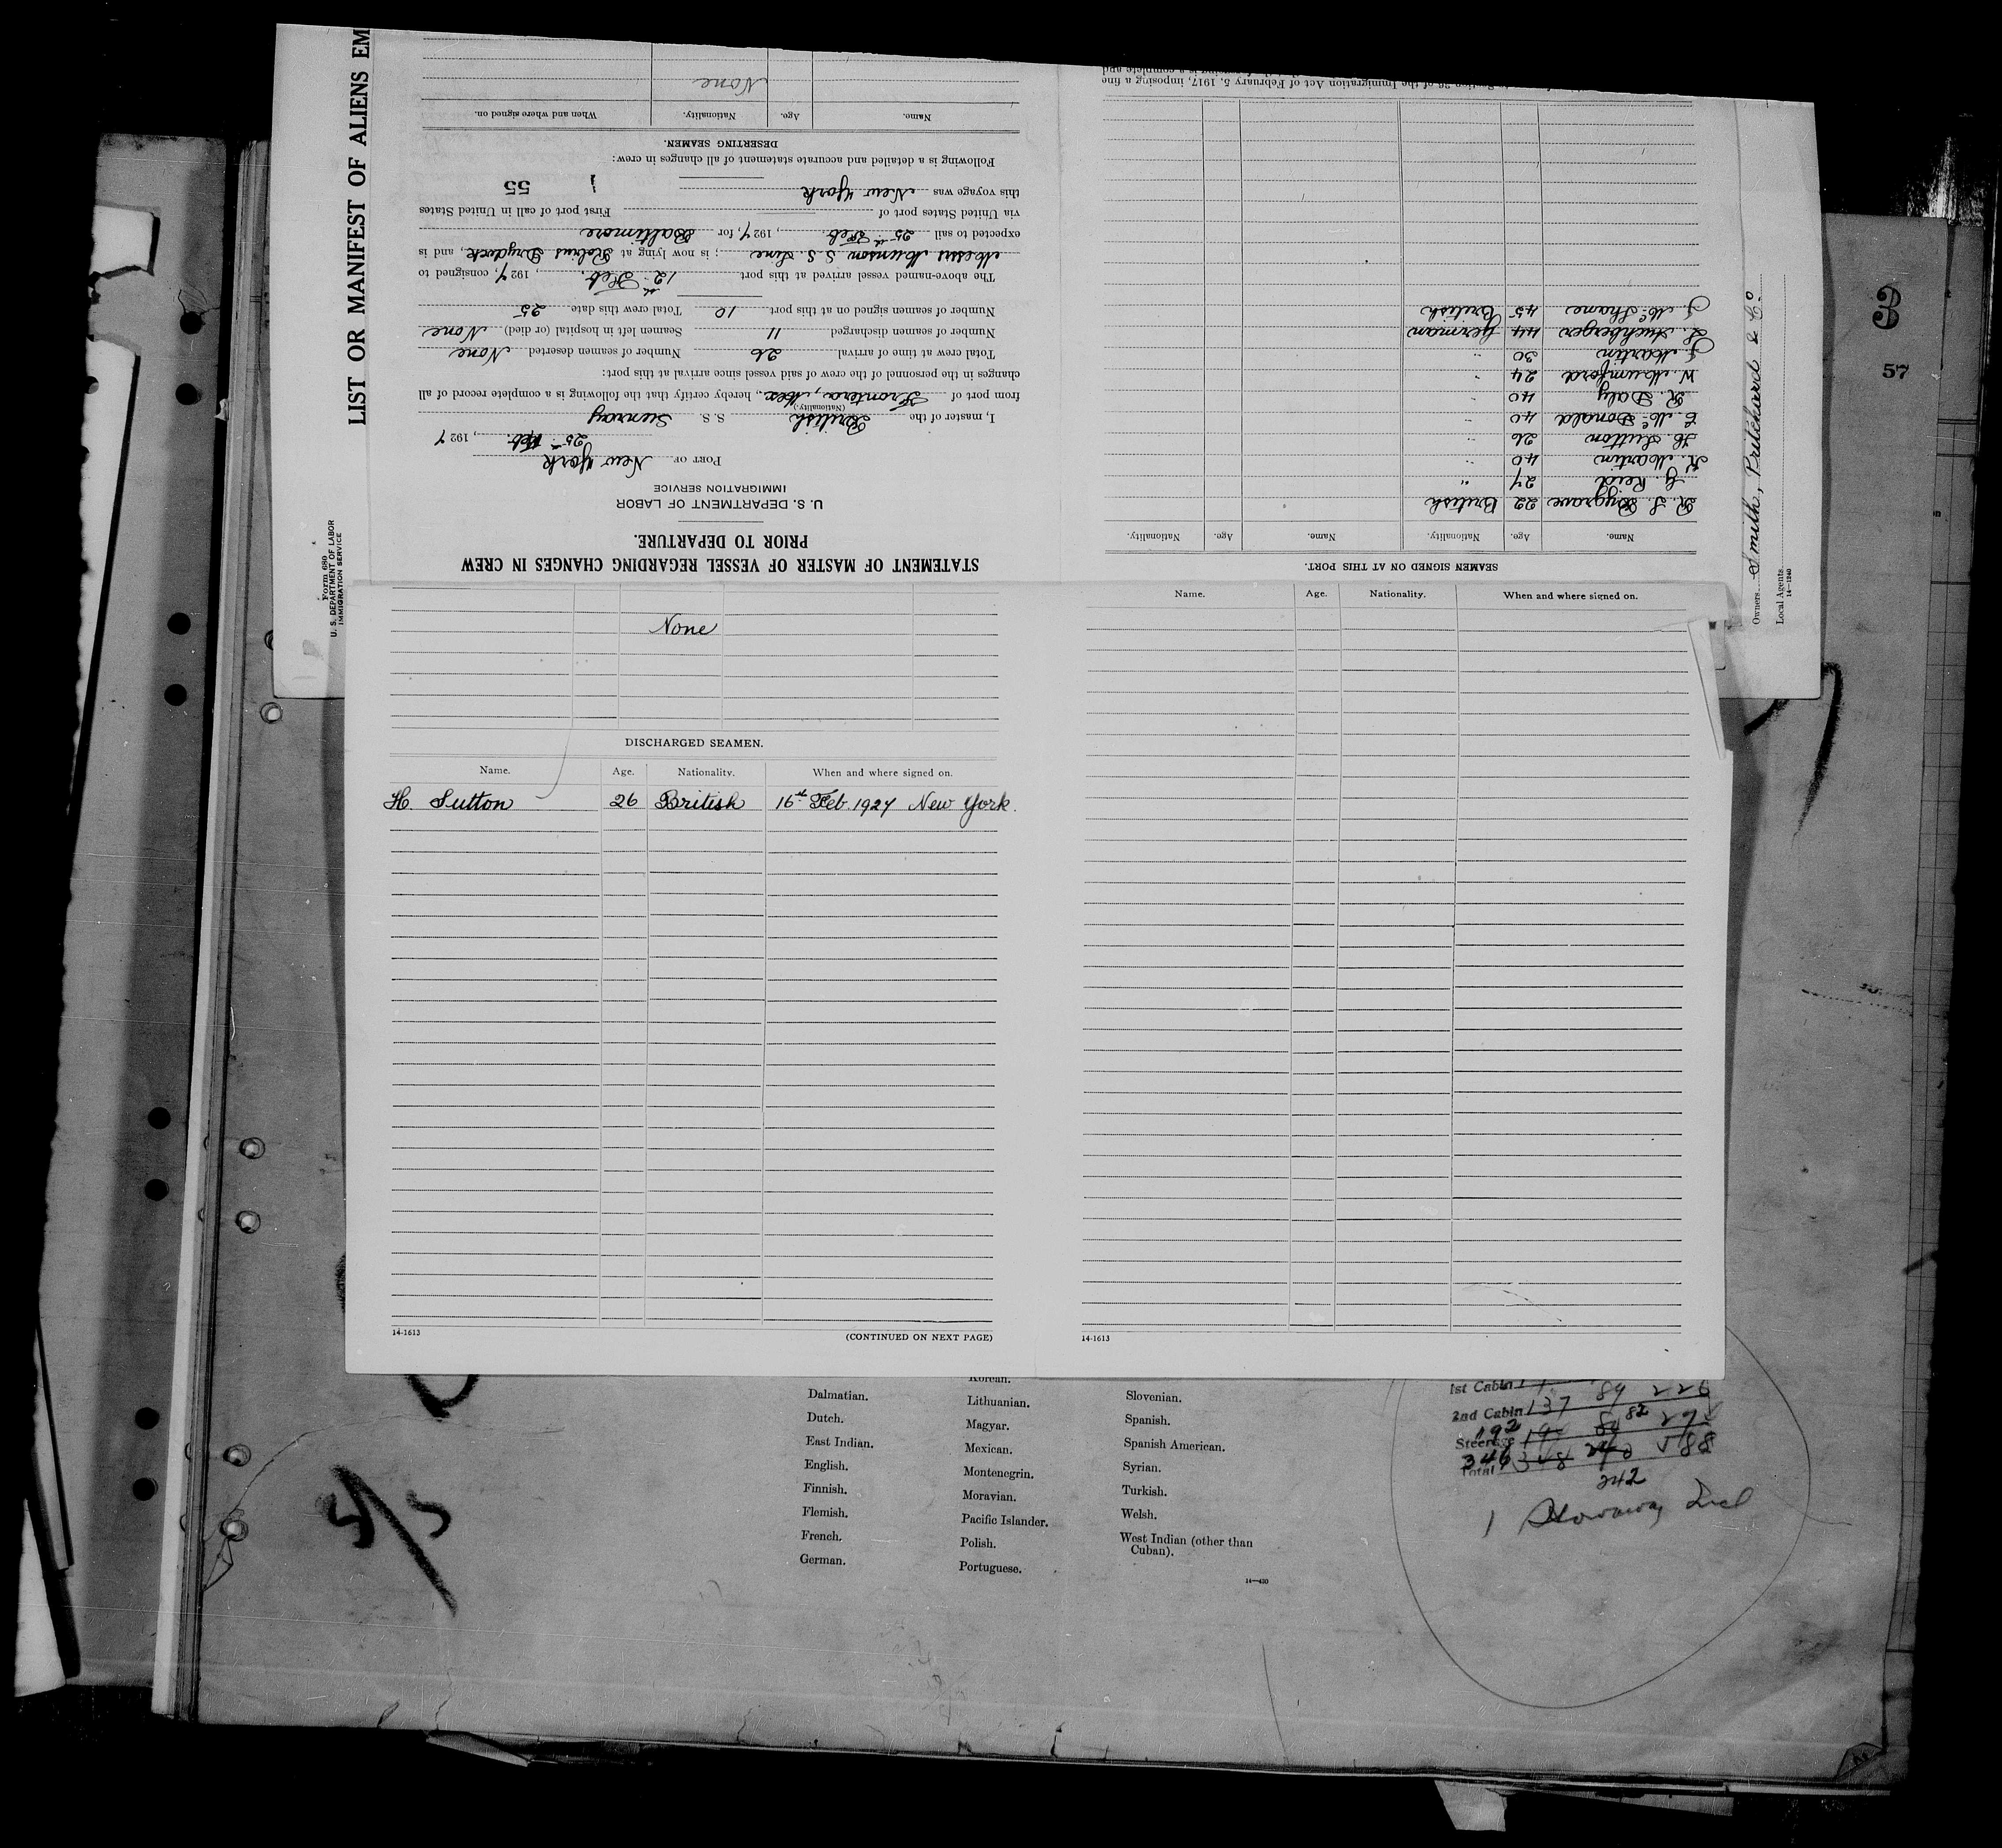 LIST OR MANIFEST OF ALIENS EM
Form 680
U. S. DEPARTMENT OF LABOR
IMMIGRATION SERVICE
STATEMENT OF MASTER OF VESSEL REGARDING CHANGES IN CREW
PRIOR TO DEPARTURE.
U. S. DEPARTMENT OF LABOR
IMMIGRATION SERVICE
PORT OF New York
25th Feb., 1927
I, master of the British S. S. Sunray
(Nationality.)
from port of Frontera, Mex., hereby certify that the following is a complete record of all
changes in the personnel of the crew of said vessel since arrival at this port:
Total crew at time of arrival 26 Number of seamen deserted None
Number of seamen discharged 11 Seamen left in hospital (or died) None
Number of seamen signed on at this port 10 Total crew this date 25
The above-named vessel arrived at this port 12th Feb., 1927, consigned to
Messrs Munson S. S. Line; is now lying at Robins Drydock, and is
expected to sail 25th Feb., 1927, for Baltimore
via United States port of First port of call in United States
this voyage was New York
1 55
Following is a detailed and accurate statement of all changes in crew:
DESERTING SEAMEN.
Name. Age. Nationality. When and where signed on.
None
SEAMEN SIGNED ON AT THIS PORT.
Name. Age. Nationality. Name. Age. Nationality.
R. S. Bygrave 22 British
G. Reid 27 "
R. Martin 40 "
H. Sutton 26 "
C. McDonald 40 "
R. Daly 40 "
W. Mumford 24 "
J. Martin 30 "
L. 44 German
J. McShane 45 British
26 of the Immigration Act of February 5, 1917, imposing a fine
Owners Smith, Pritchard & Co.
Local Agents.
14-1240
3
57
None
DISCHARGED SEAMEN.
Name. Age. Nationality. When and where signed on.
H. Sutton 26 British 16th Feb. 1927 New York.
14-1613
(CONTINUED ON NEXT PAGE)
Name. Age. Nationality. When and where signed on.
14-1613
Dalmatian.
Dutch.
East Indian.
English.
Finnish.
Flemish.
French.
German.
Korean.
Lithuanian.
Magyar.
Mexican.
Montenegrin.
Moravian.
Pacific Islander.
Polish.
Portuguese.
Slovenian.
Spanish.
Spanish American.
Syrian.
Turkish.
Welsh.
West Indian (other than
Cuban).
14-430
1st Cabin
2nd Cabin 137 89 226
Steerage 192 82
Total 346 588
242
1 Stowaway Incl